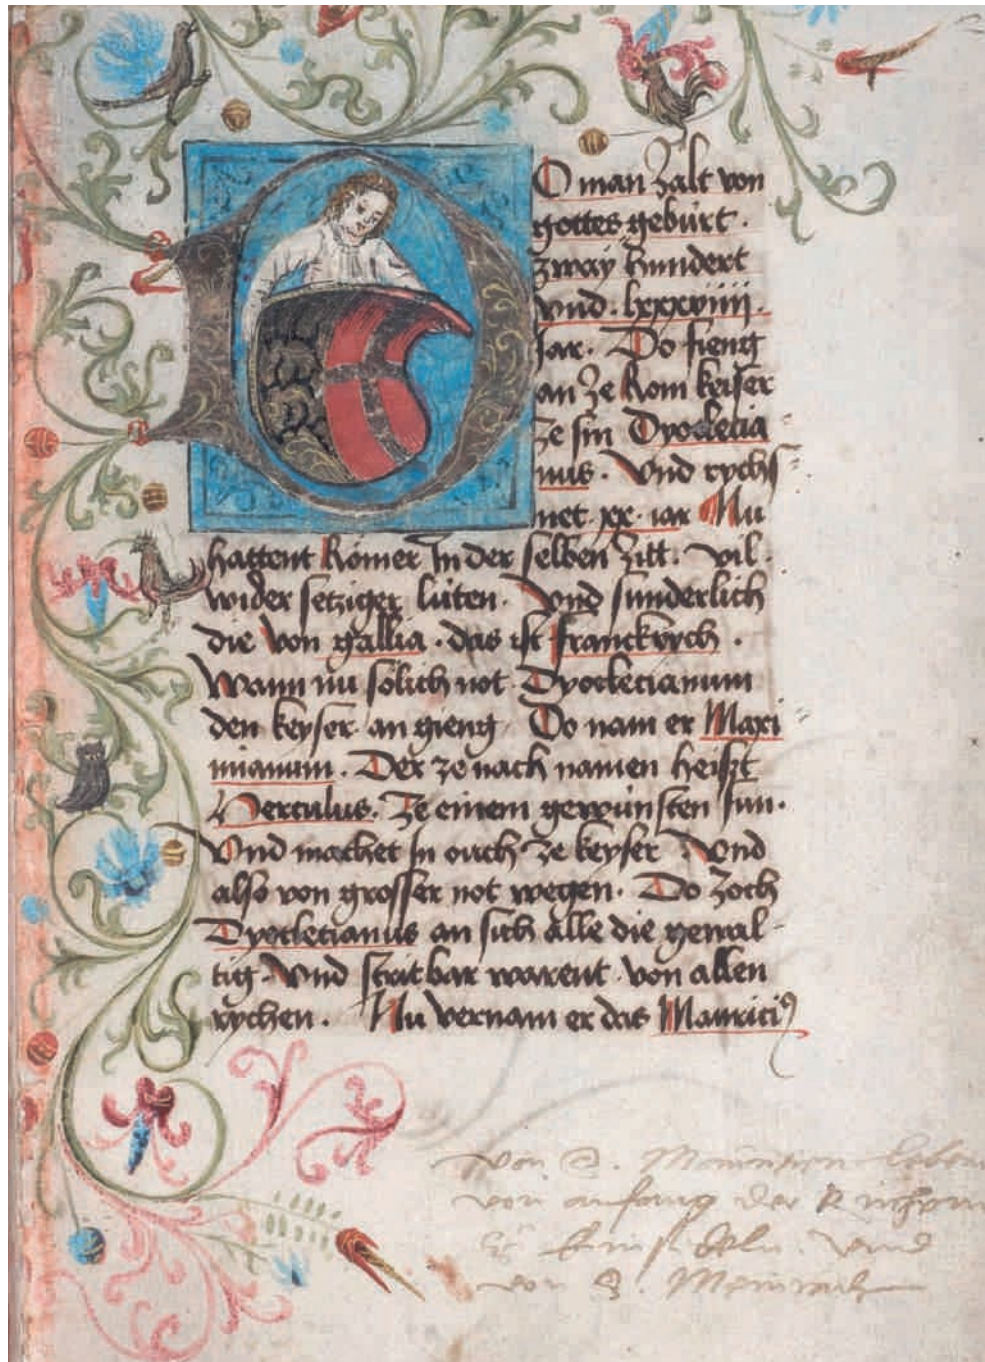 DO man zalt von
gottes gebúrt .
zway hundert
vnd . lxxxviiii .
Jar . Do fieng
an ze Rom keiser
ze sin Dyoclecia
nus . Vnd rychs
net . xx . iar Nu
hattent Rômer In der selben zitt . vil .
wider setziger lúten . Vnd sunderlich
die von gallia . das ist franckrych .
Wann nu sôlich not Dyoclecianum
den keyser an gieng . Do nam er Maxi
mianum . Der zo nach namen heisst
Herculus . Ze einem gewúnsten sun .
Vnd machet in ouch ze keyser . Vnd
also von grosser not wegen . Do zoch
Dyoclecianus an sich alle die gewal-
tig . Vnd stritbar warent von allen
rychen . Nu vernam er das Mauriciꝰ
von S. leben
von anfang der
vnd
von S. Meinrad